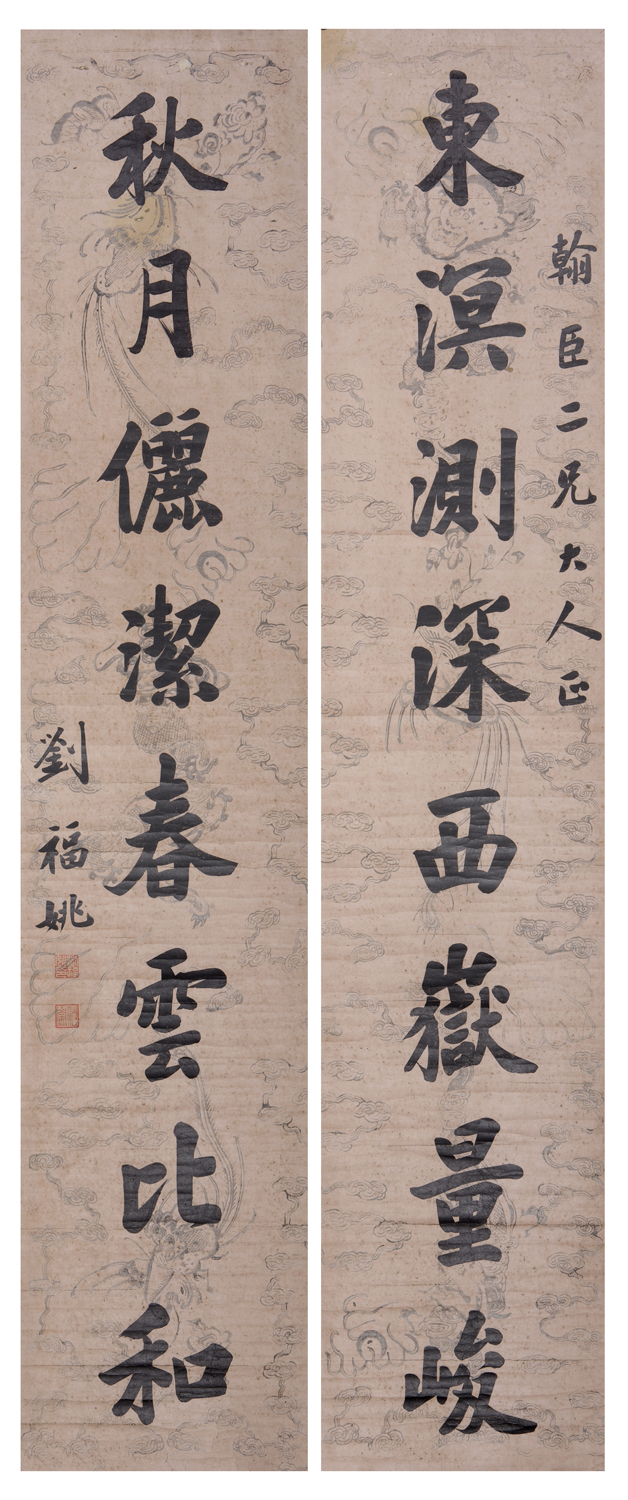 翰臣二兄大人正
東溟測深西嶽量峻
秋月儷潔春雲比和
劉福姚